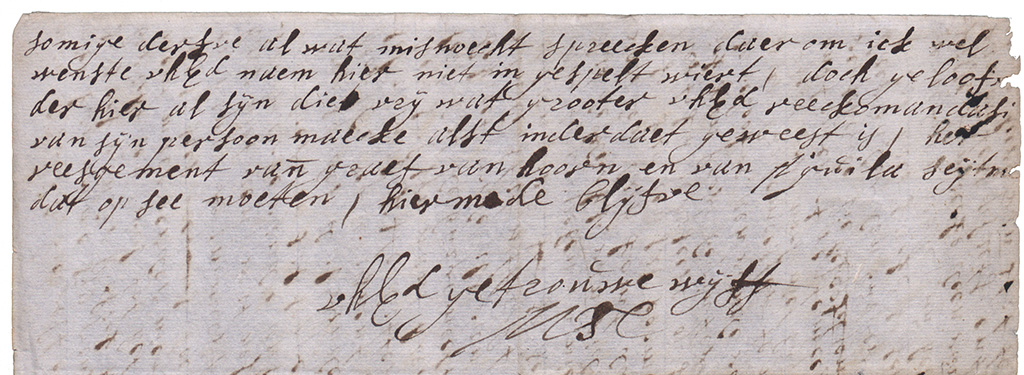 somige derfve al wat misnoecht spreecken daerom ick wel
wenste uhEd naem hier niet in gespelt wiert, doch geloof
der hier al sijn die vrij wat grooter uhEd reeckomandasi
van sijn persoon maecke alst inderdaet geweest is, het
reesgement van graef van hoorn en van seijt
dat op see moeten, hiermede blijfve
uhEd getrouwe wijff